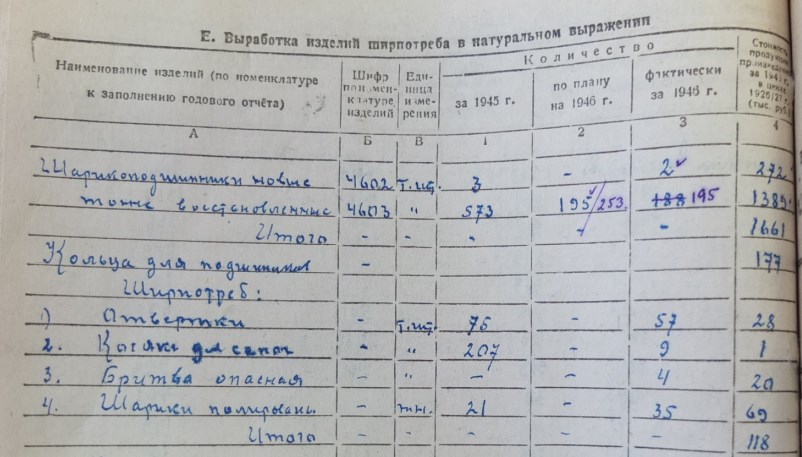 Е. Выработка изделий ширпотреба в натуральном выражении
Наименование изделий (по номенклатуре к заполнению годового отчёта) Шифр по номенклатуре изделий Единица измерения Количество
за 1945 г. по плану на 1946 г. фактически за 1946 г. Стоимость продукции за 194 в ценах 1926/27 (тыс. руб.)
А Б В 1 2 3 4
Шарикоподшипники новые 4602 т.шт. 3 - 2 272
тоже восстановленные 4603 " 573 195/253 188 195 1389
Итого - - - - - 1661
Кольца для подшипников - 177
Ширпотреб:
1) Отвертки - т.шт. 76 - 57 28
2. Косяки для сапог - " 207 - 9 1
3. Бритва опасная - " - - 4 20
4. Шарики - тн. 21 - 35 69
Итого - - - - - 118